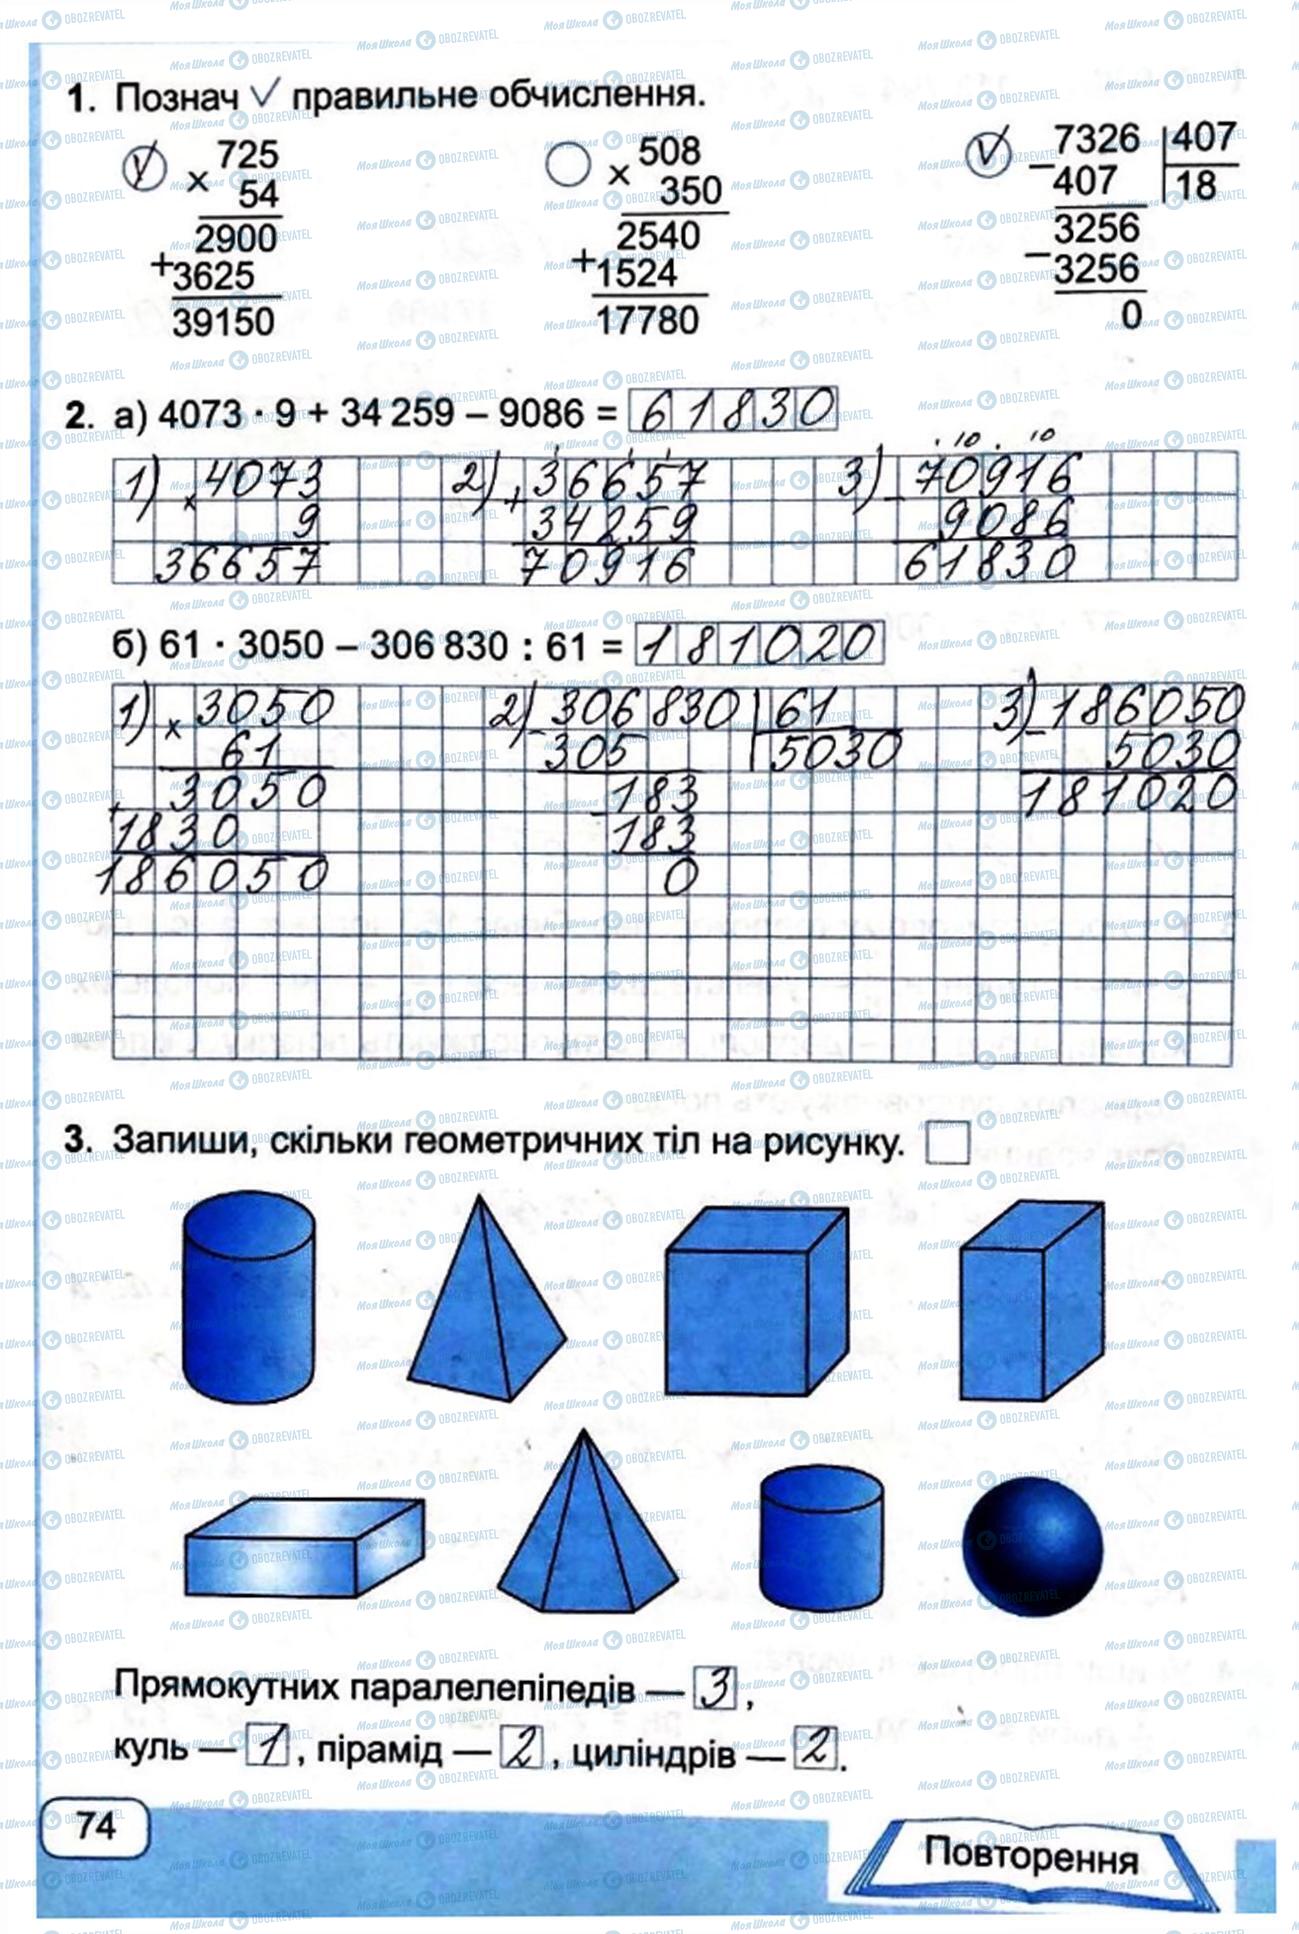 1. Познач ✓ правильне обчислення.
✓ × 725
54
2900
+ 3625
39150
× 508
350
2540
+ 1524
17780
✓ − 7326 | 407
407 | 18
3256
− 3256
0
2. а) 4073 · 9 + 34 259 – 9086 = 61830
1) × 4073
9
36657
2) + 36657
34259
70916
3) − 70916
9086
61830
б) 61 · 3050 – 306 830 : 61 = 181020
1) × 3050
61
+ 3050
1830
186050
2) − 306 830 | 61
305 | 5030
− 183
183
0
3) − 186050
5030
181020
3. Запиши, скільки геометричних тіл на рисунку.
Прямокутних паралелепіпедів — 3 ,
куль — 1 , пірамід — 2 , циліндрів — 2 .
74
Повторення
МояШкола OBOZREVATEL